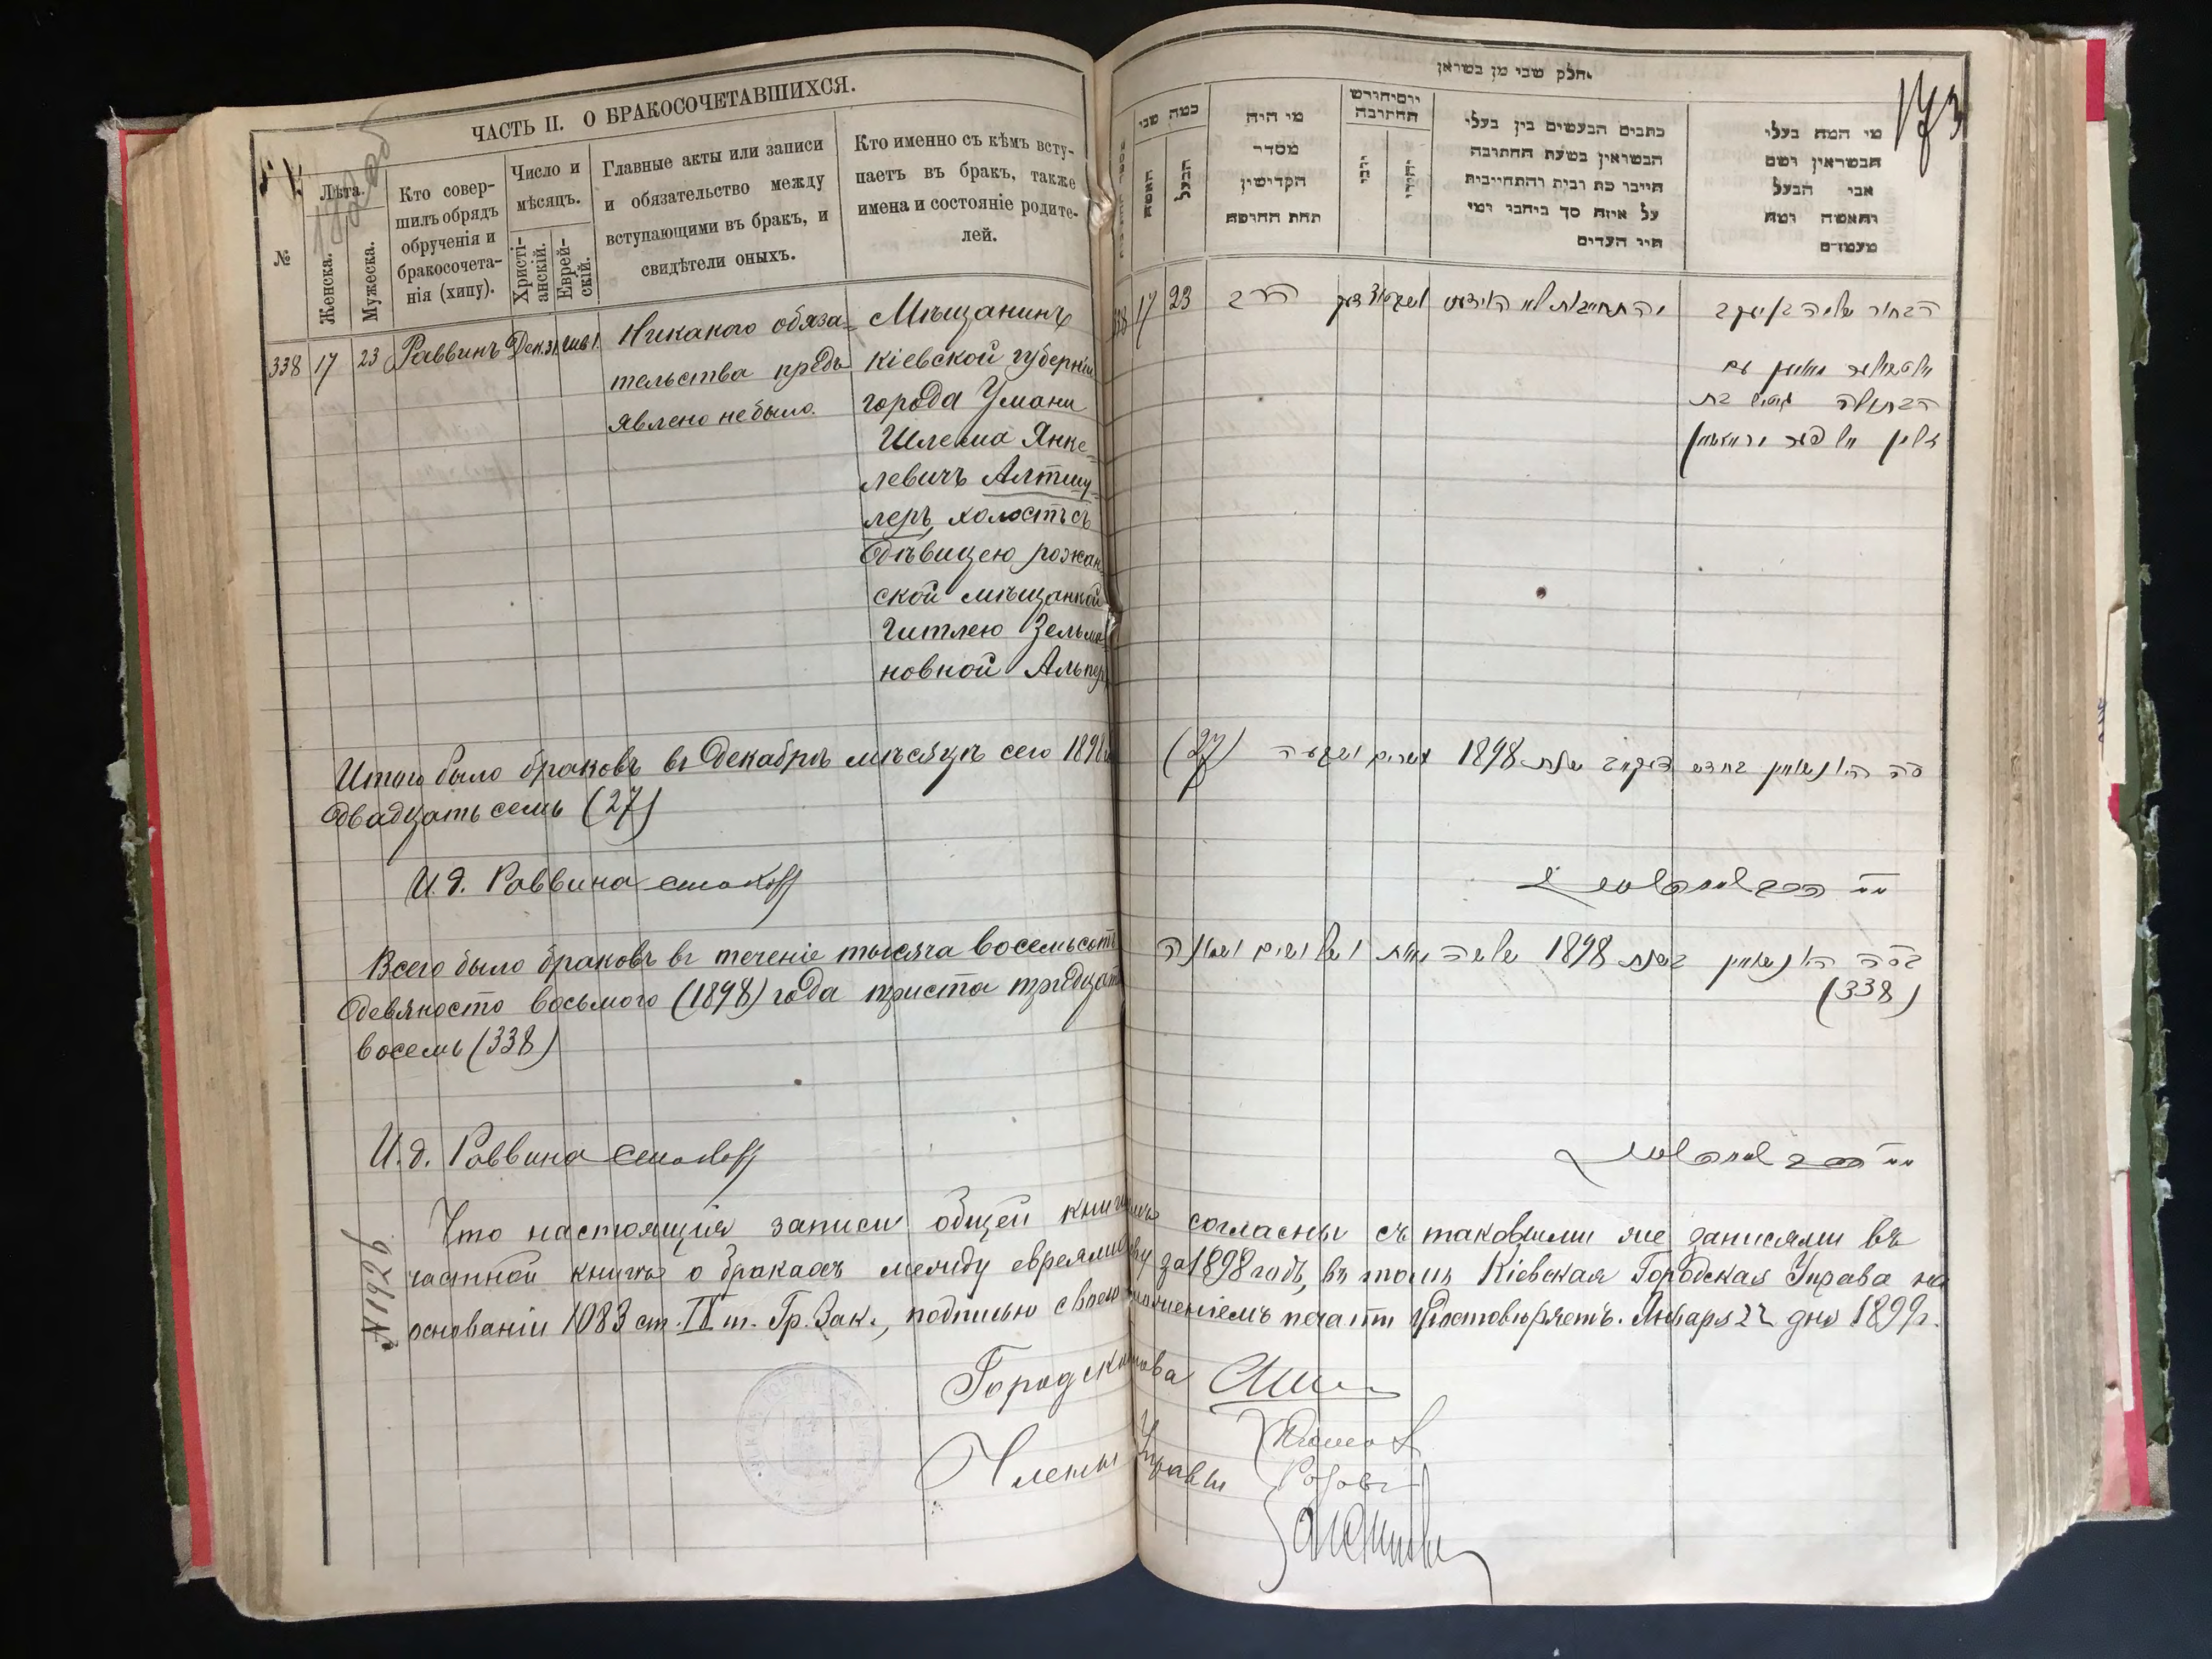 ЧАСТЬ II. О БРАКОСОЧЕТАВШИХСЯ.
№
Лѣта.
Женска.
Мужеска.
Кто совер-
шилъ обрядъ
обрученія и
бракосочета-
нія (хипу).
Число и
мѣсяцъ.
Христі-
анскій.
Еврей-
скій.
Главные акты или записи
и обязательство между
вступающими въ бракъ, и
свидѣтели оныхъ.
Кто именно съ кѣмъ всту-
паетъ въ бракъ, также
имена и состояніе родите-
лей.
338 17 23 Раввинъ Дек. 31
Никакого обяза-
тельства предъ
явлено не было.
Мѣщанинъ
Кіевской губерніи
города Умани
Шлема Янке-
левичъ Алтшу-
леръ, холостъ съ
дѣвицею рожан-
ской мѣщанкой
Гитлею Зельма-
новной Альпер
Итого было браковъ въ Декабрѣ мѣсяцѣ сего 1898
двадцать семь (27)
И. д. Раввина
Всего было браковъ въ теченіе тысяча восемьсотъ
девяносто восьмого (1898) года триста тридцать
восемь (338)
И. д. Раввина
№ 192
חלק שני מן נשואין.
173
כמה שני
האשה
הבעל
מי היה
מסדר
הקדישין
תחת החופה
יום וחודש
החתונה
כתבים הנעשים בין בעלי
הנשואין בשעת החתונה
על איזה סך
היו העדים
מי המה בעלי
הנשואין ושם
אבי הבעל
והאשה ומה
מעמדם
338 17 23 הרב
הבחור שלמה בן יעקב
הבתולה גיטל בת
סה הי נשואין בחדש דעקאב שנת 1898 עשרים ושבעה (27)
בסה הי נשואין בשנת 1898 שלשה מאות ושלושים ושמונה
(338)
Что настоящія записи общей книги согласны съ таковыми же записями въ
частной книгѣ о бракахъ между евреями за 1898 годъ, въ томъ Кіевская Городская Управа на
основаніи 1083 ст. IX т. Гр. Зак., подписью съ приложеніемъ печати удостовѣряетъ. Января 22 дня 1899 г.
Городской Голова
Члены Управы